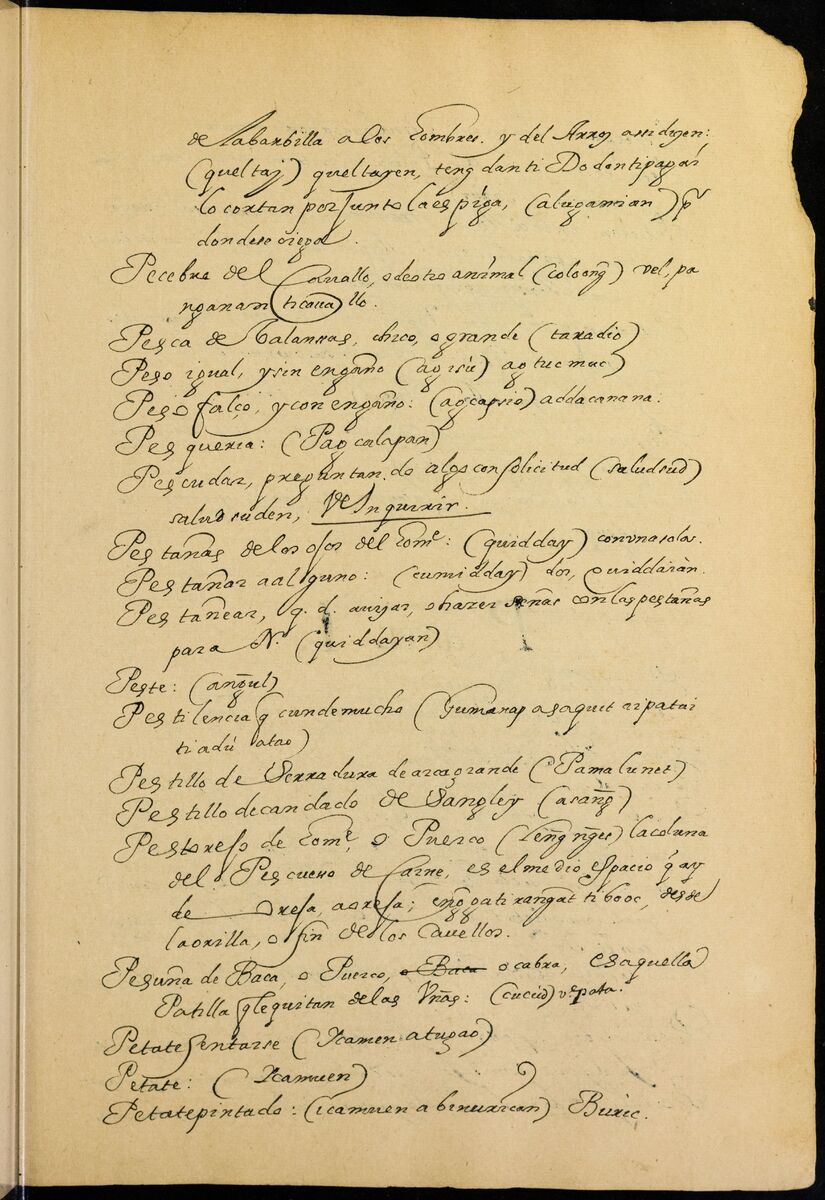 de la barbilla a los Hombres. y del Arroz assi dizen:
(queltaj) queltayen, teng danti Do dontipagái
lo cortan por junto la espiga, (alugamian) pr
donde se ciega.
Pecebre del Cauallo, o de otro animal (coloong) vel, pa
nganan ticaua llo.
Pesca de Talanras, chico, o grande (taradio)
Peso igual, y sin engaño (ag isù) ag tucmuc)
Peso falço, y con engaño: (ag capsio) addacanana.
Pesqueria: (Pag calapan)
Pescudar, preguntan.do algo con solicitud (saludsud)
saludsuden, Ve Inquirir.
Pestañas de los ojos del Home: (quidday) con vna sola.
Pestañar a alguno: (cumidday) dos, quiddáràn.
Pestañear, q. d. auisar, o hazer señas con las pestañas
para N. (quiddayan)
Peste: (angul)
Pestilencia q cunde mucho (Gumarap a saquit ai patai
ti adú a tao)
Pestillo de Serradura de arca grande (Pamalunet)
Pestillo de candado de Sangley (asang)
Pestorejo de Home, o Puerco (teng nged) la coluna
del Pescueso de Carne, es el medio espacio q ay
de Oreja, a oreja; engga ti rangat ti booc, desde
la orilla, o fin de los Cauellos.
Pesuña de Baca, o Puerco, o Baca o cabra, es aquella
Patilla q le quitan de las Vñas: (cucúd) ve pata.
Petate sentarse (Ycamen a tugao)
Petate: (Ycamuen)
Petate pintado: (icamuen a binurican) Buric.